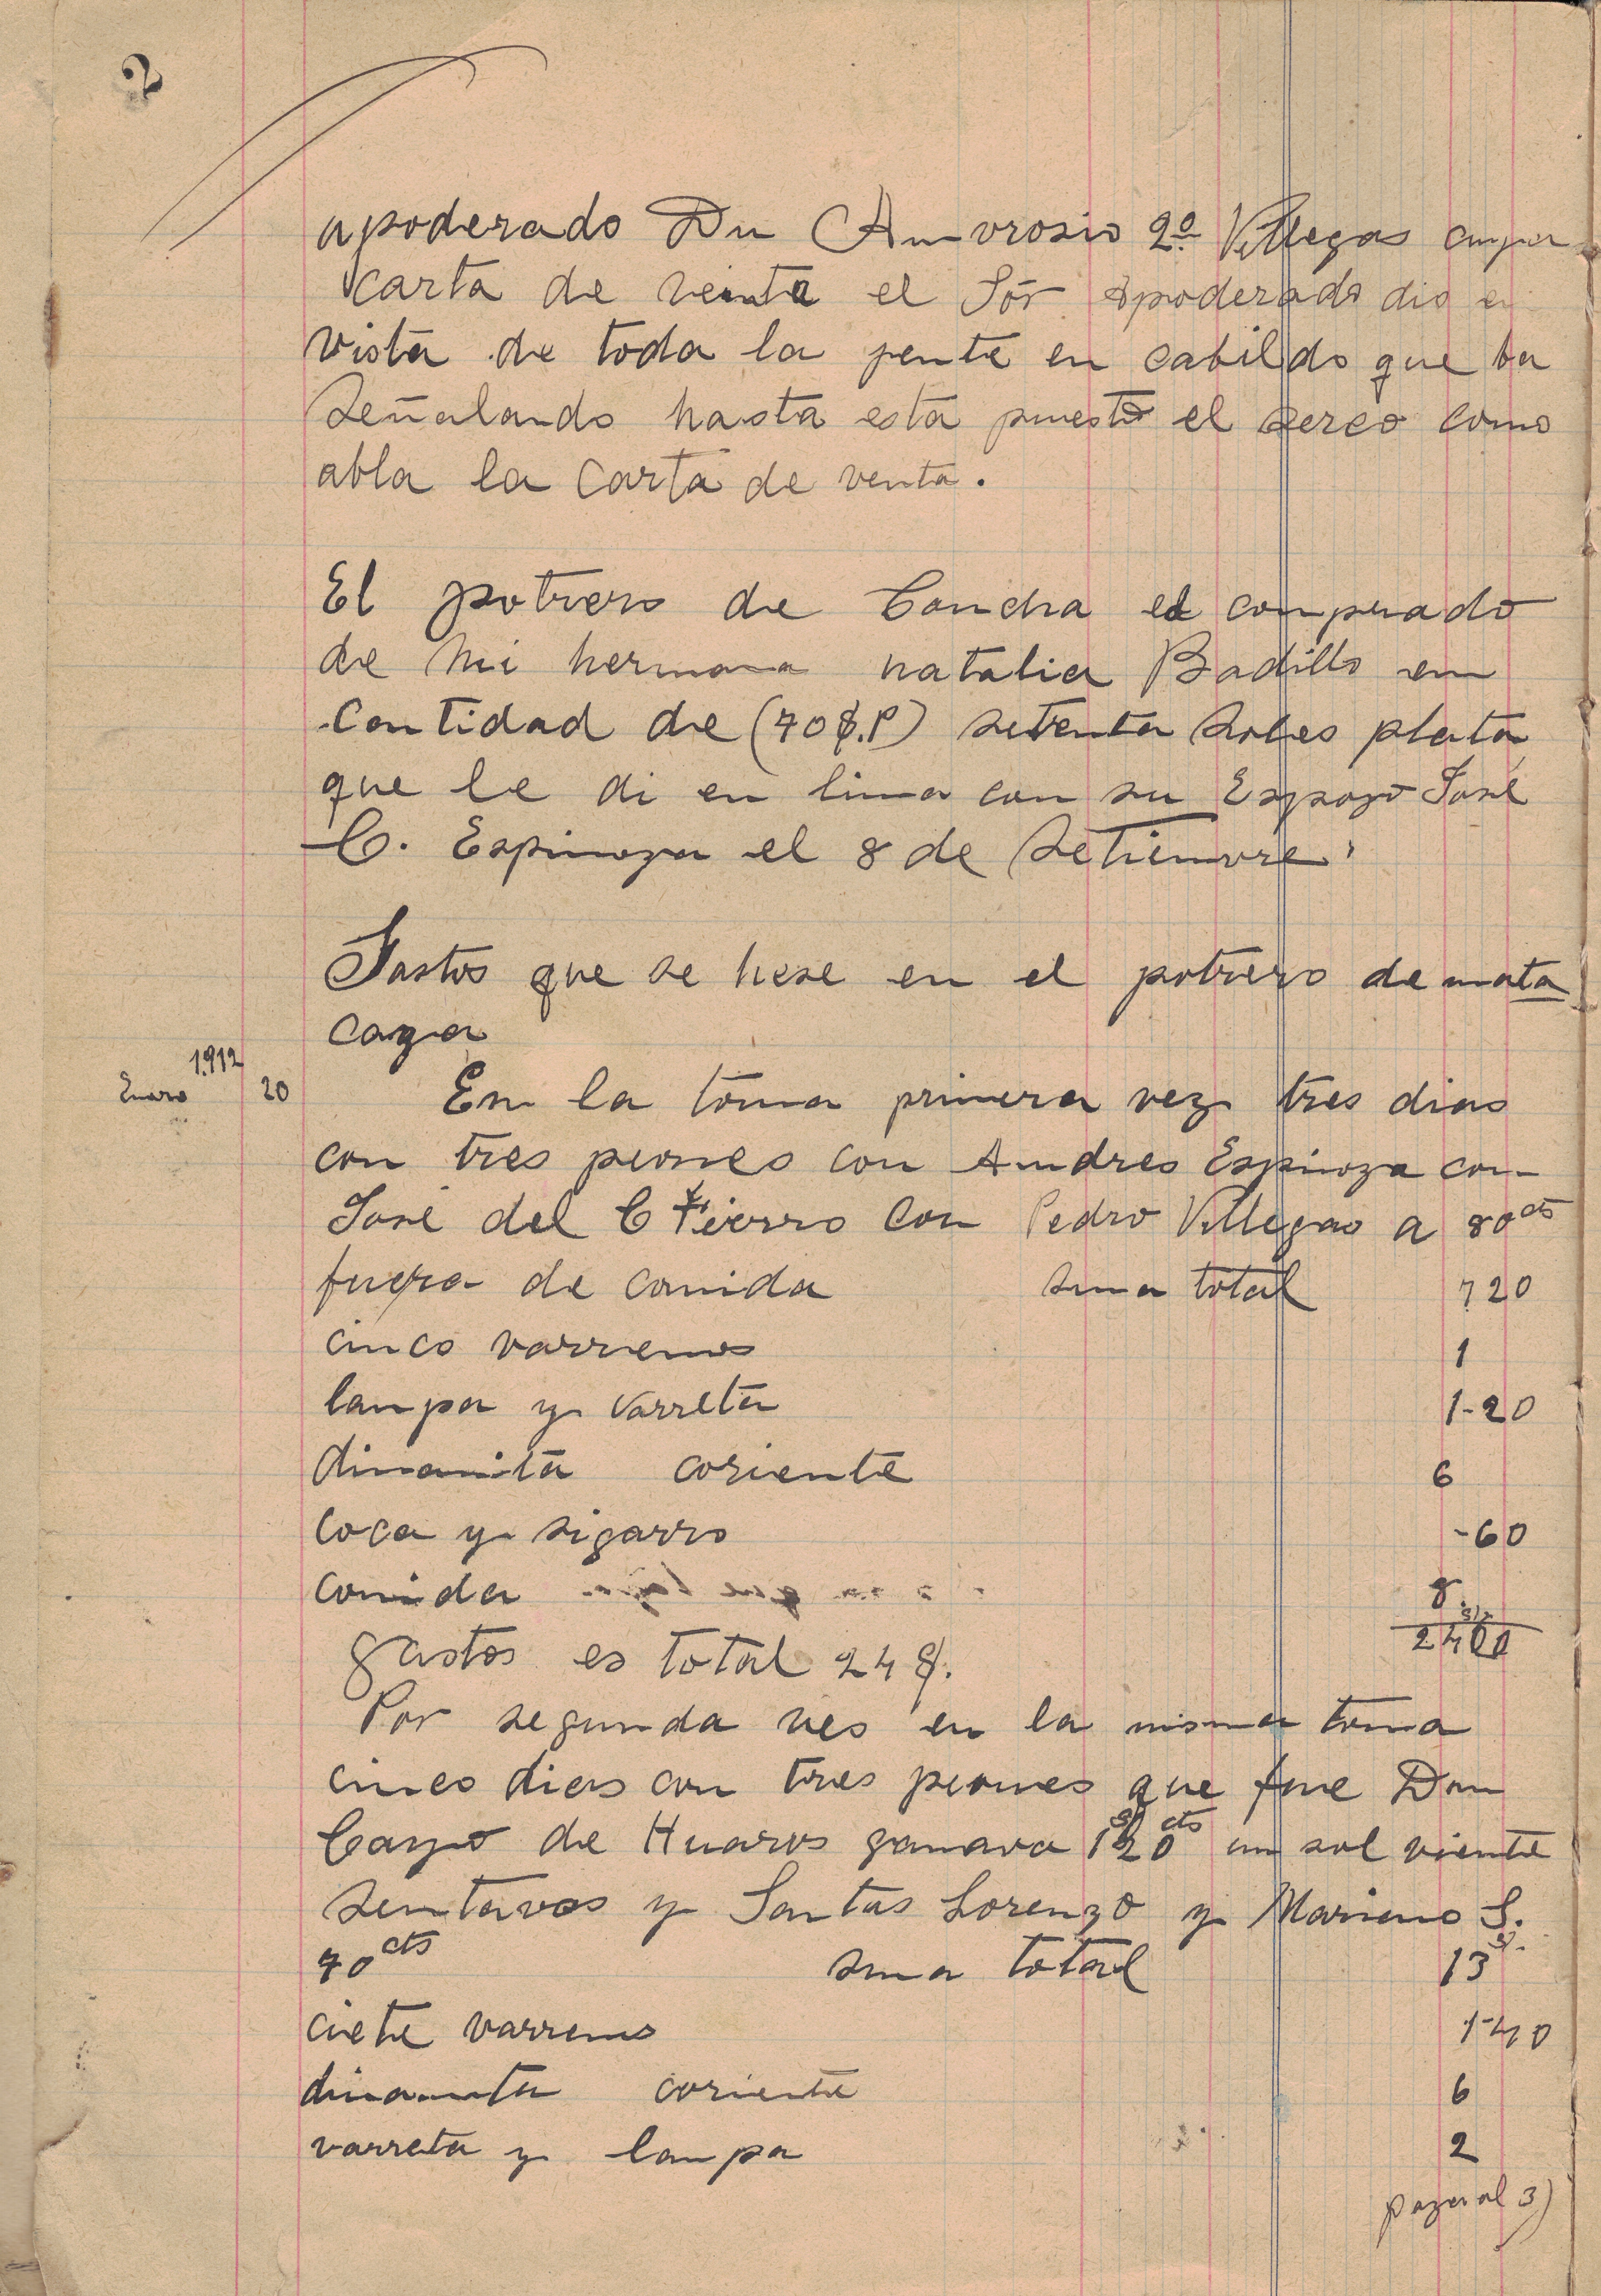 2
apoderado Dn Amvrosio 2º Villegas cuya
carta de venta el Sor apoderado dio en
vista de toda la gente en cabildo que ba
señalando hasta esta puesto el serco como
abla la carta de venta.
El potrero de Concha el comprado
de mi hermana natalia Badillo em
Cantidad de (70 $.P) setenta Soles plata
que le di en lima con su Espozo José
C. Espinoza el 8 de Setiemvre.
Gastos que se hese en el potrero de mata
caza
1912
Enero 20 Em la toma primera vez tres dias
con tres peones con Andres Espinoza con
José del C Fierro con Pedro Villegas a 80 cts
fuera de comida suma total 720
cinco varrenos 1
lampa y varreta 1-20
dinamita coriente 6
coca y sigarro -60
comida 8.
2400
gastos es total 24 $.
Por segunda ves en la misma toma
cinco dias con tres peones que fue Don
Cayo de Huaros ganava 1$20 cts un sol viente
sentavos y Santos Lorenzo y Mariano S.
70 cts suma total 13 $.
ciete varrenos 1-40
dinamita coriente 6
varreta y lampa 2
paza al 3)